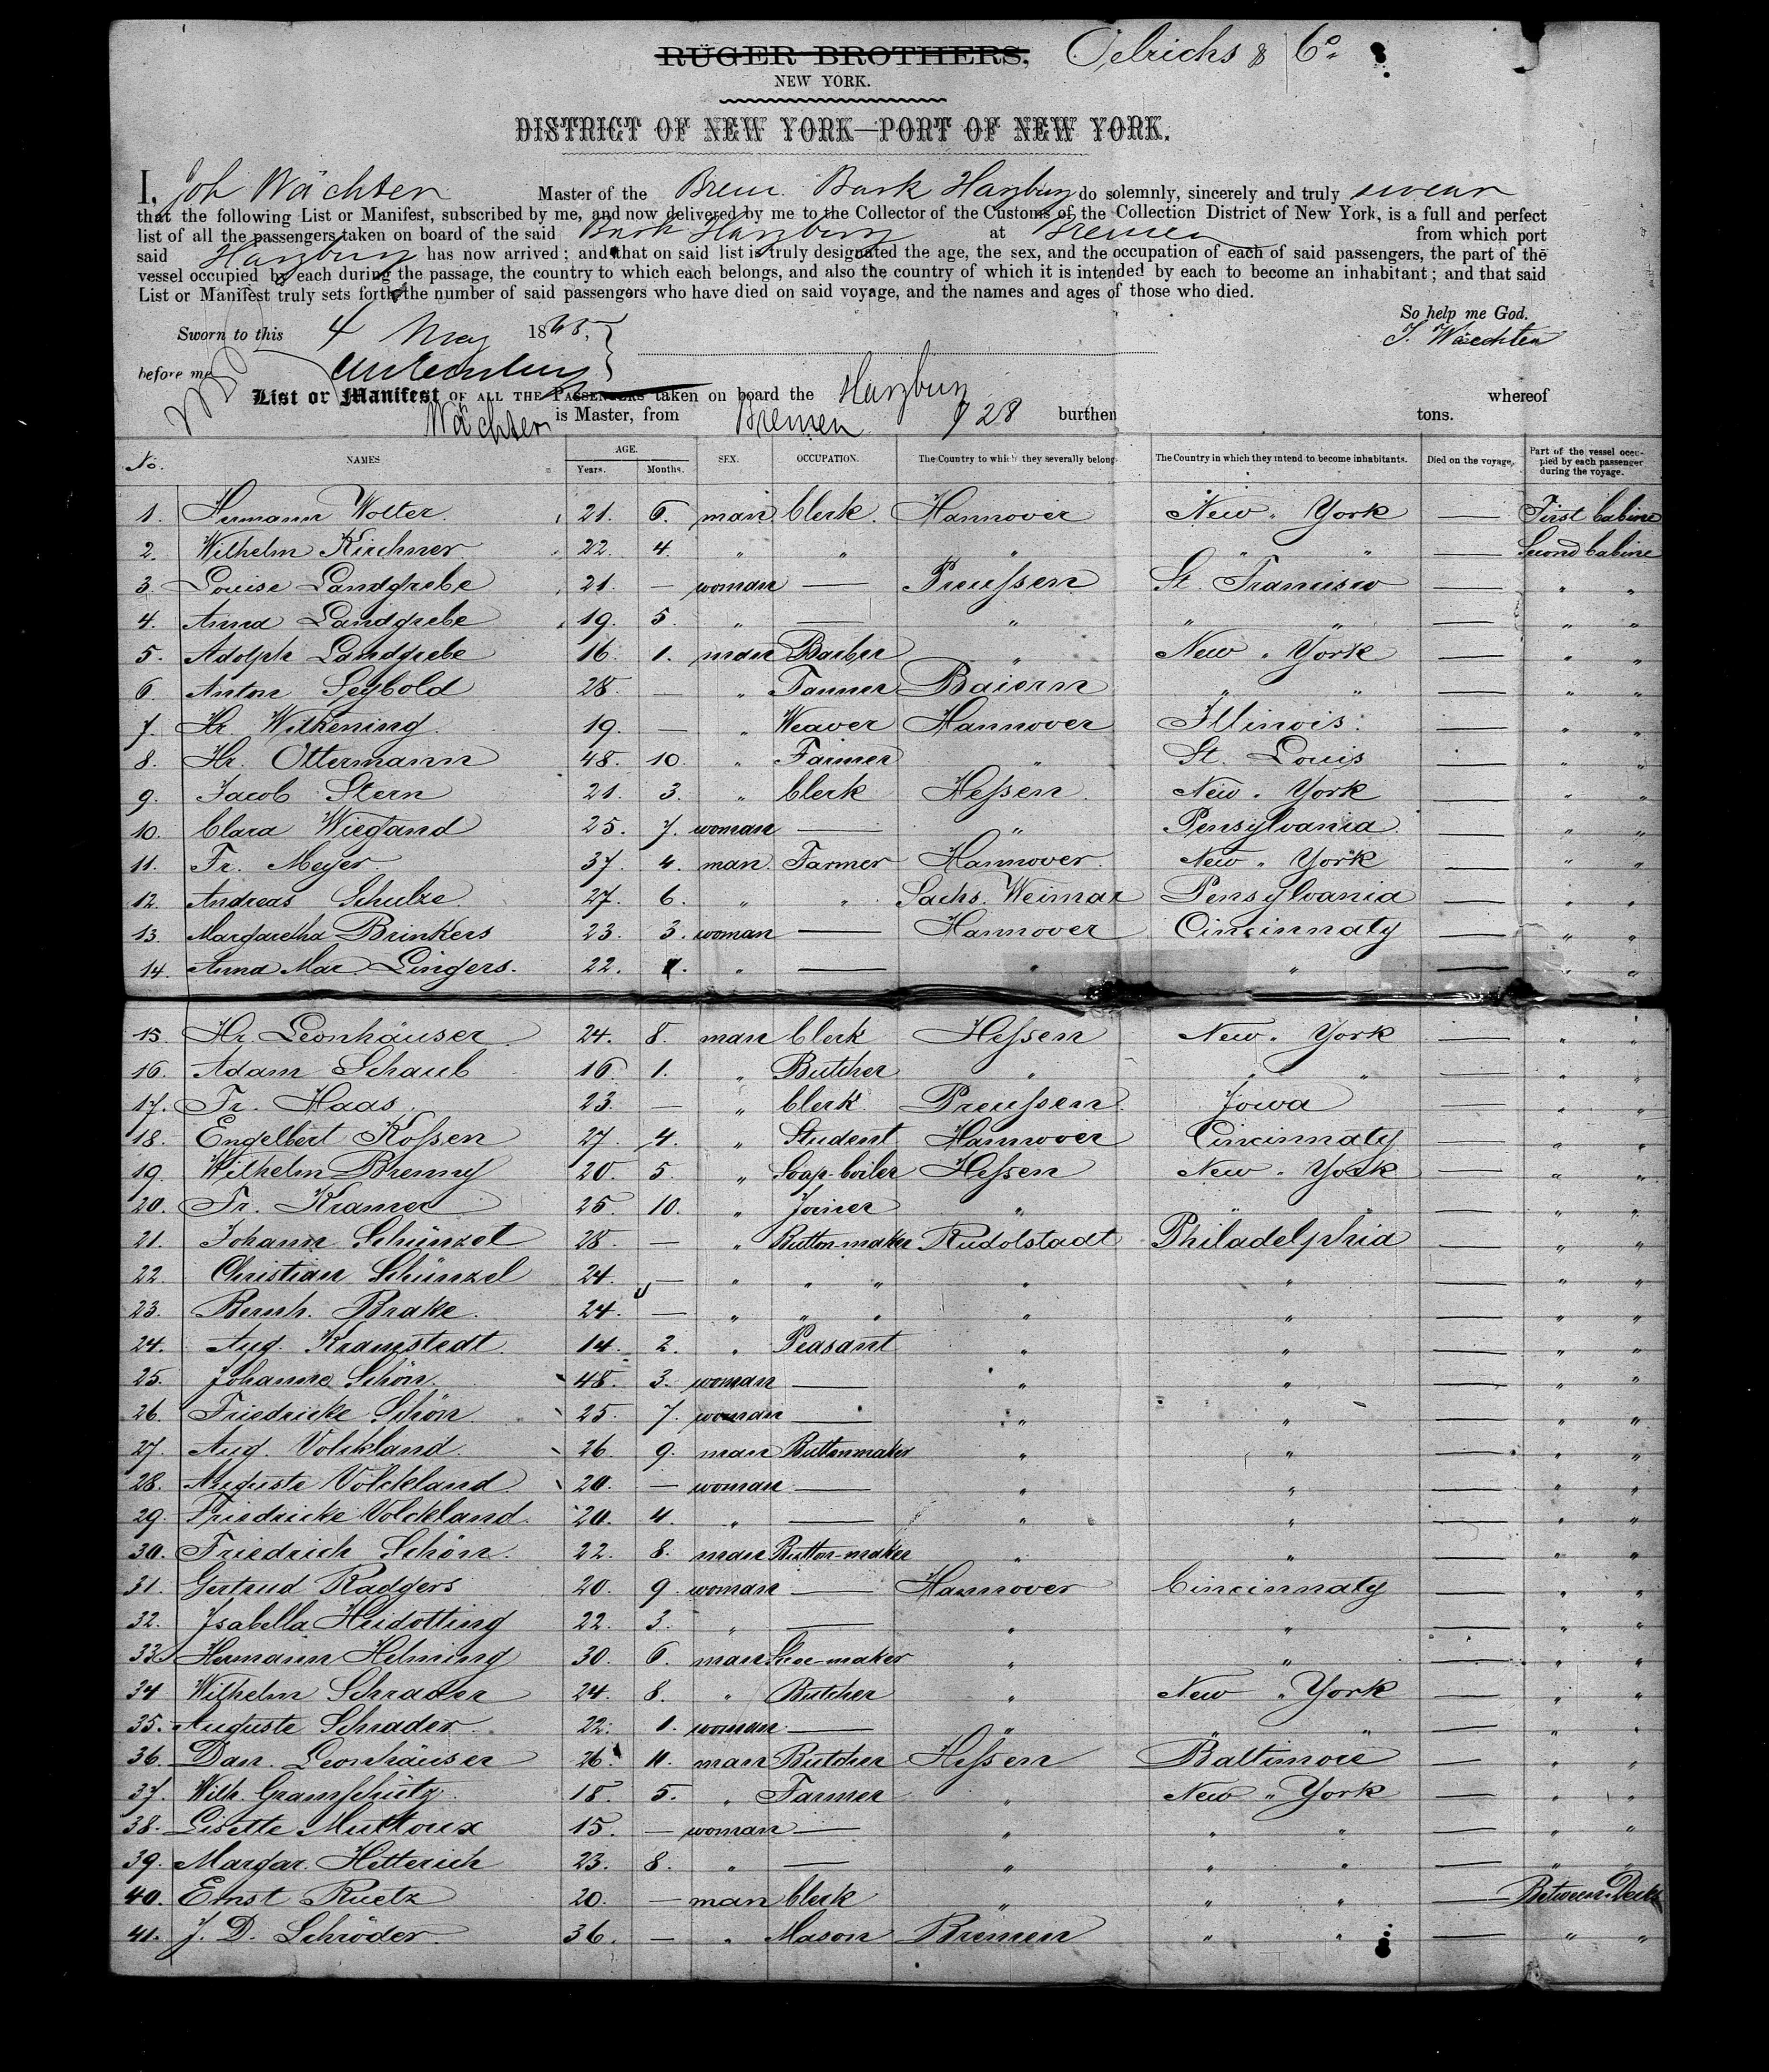 RÜGER BROTHERS, Oelrichs & Co.
NEW YORK.
DISTRICT OF NEW YORK—PORT OF NEW YORK.
I, Joh Wächter Master of the Brem. Bark Harzburg do solemnly, sincerely and truly swear
that the following List or Manifest, subscribed by me, and now delivered by me to the Collector of the Customs of the Collection District of New York, is a full and perfect
list of all the passengers taken on board of the said Bark Harzburg at Bremen from which port
said Harzburg has now arrived; and that on said list is truly designated the age, the sex, and the occupation of each of said passengers, the part of the
vessel occupied by each during the passage, the country to which each belongs, and also the country of which it is intended by each to become an inhabitant; and that said
List or Manifest truly sets forth the number of said passengers who have died on said voyage, and the names and ages of those who died.
So help me God.
Sworn to this 4 May 1865, J. Waechter
before me
List or Manifest OF ALL THE PASSENGERS taken on board the Harzburg whereof
Wächter is Master, from Bremen 728 burthen tons.
No. NAMES AGE. Years. Months. SEX. OCCUPATION. The Country to which they severally belong. The Country in which they intend to become inhabitants. Died on the voyage. Part of the vessel occupied by each passenger during the voyage.
1. Hermann Wolter. 21. 6. man Clerk. Hannover New York — First Cabine
2. Wilhelm Kirchner 22. 4. " " " " " — Second Cabine
3. Louise Landgrebe 21. — woman — Preußen St. Francisco — " "
4. Anna Landgrebe 19. 5. " — " " " — " "
5. Adolph Landgrebe 16. 1. man Barber " New York — " "
6. Anton Seybold 28. — " Tanner Baiern " " — " "
7. Hr. Wilkening. 19. — " Weaver Hannover Illinois. — " "
8. Hr. Ottermann 48. 10. " Farmer " St. Louis — " "
9. Jacob Stern 21. 3. " Clerk Heßen. New York — " "
10. Clara Wiegand 25. 7. woman — " Pensylvania. — " "
11. Fr. Meyer 37. 4. man. Farmer Hannover. New York — " "
12. Andreas Schulze 27. 6. " " Sachs. Weimar Pensylvania — " "
13. Margaretha Brinkers 23. 3. woman — Hannover Cincinnaty — " "
14. Anna Mar. Lingers. 22. 1. " — " " — " "
15. Hr. Leonhäuser. 24. 8. man Clerk Heßen New York — " "
16. Adam Schaub 16. 1. " Butcher " " " — " "
17. Fr. Haas. 23. — " Clerk Preußen. Jowa — " "
18. Engelbert Koßen 27. 4. " Student Hannover Cincinnaty — " "
19. Wilhelm Bremy 20. 5. " Soap-boiler Heßen New York — " "
20. Fr. Kramer 25. 10. " Joiner " " " — " "
21. Johann Schünzel 28. — " Button-maker Rudolstadt Philadelphia — " "
22. Christian Schünzel 24. — " " " " " — " "
23. Bernh. Brake. 24. — " " " " " — " "
24. Aug. Kramstedt 14. 2. " Peasant " " — " "
25. Johanne Schön. 48. 3. woman — " " — " "
26. Friedricke Schön 25. 7. woman — " " — " "
27. Aug. Volckland. 26. 9. man Buttonmaker " " — " "
28. Auguste Volckland 20. — woman — " " — " "
29. Friedricke Volckland. 20. 4. " — " " — " "
30. Friedrich Schön. 22. 8. man Button-maker " " — " "
31. Gertrud Radgers 20. 9. woman — Hannover Cincinnaty — " "
32. Isabella Heidotting 22. 3. " — " " — " "
33. Hermann Helming 30. 6. man Shoe-maker " " — " "
34 Wilhelm Schrader 24. 8. " Butcher " New York — " "
35. Auguste Schrader. 22. 1. woman — " " " — " "
36. Dan. Leonhäuser 26. 11. man Butcher Heßen Baltimore — " "
37. Wilh. Gramschütz. 18. 5. " Farmer " New York — " "
38. Lisette Muttoux 15. — woman — " " " — " "
39. Margar. Hetterich 23. 8. " — " " " — " "
40. Ernst Ruetz 20. — man Clerk " " " — Between Decks
41. J. D. Schröder. 36. — " Mason Bremen " " — " "